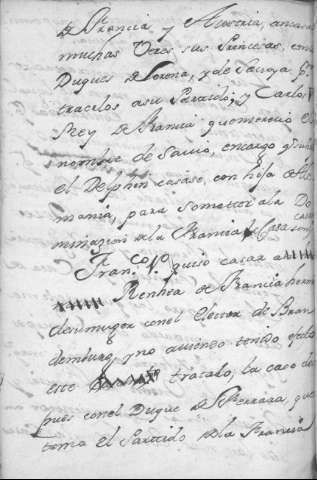 de Francia y Austria, ancasa
muchas Veces sus Princesas, con
Duques de Lorena, y de Savoya pª
traerlos asu Partido; y Carlos V
Rey de Francia que merecio el
nombre de Savio, encargo que
el Delphin casase, con hija de Ale
mania, para someter ala Do
minacion de la Francia
Franco 1º quiso casar a
Renhea de Francia herm
desumuger con el Elector de Bran
demburg, y no auiendo tenido efecto
este tratado, la caso des
pues con el Duque de Ferrara, que
tomo el Partido de la Francia